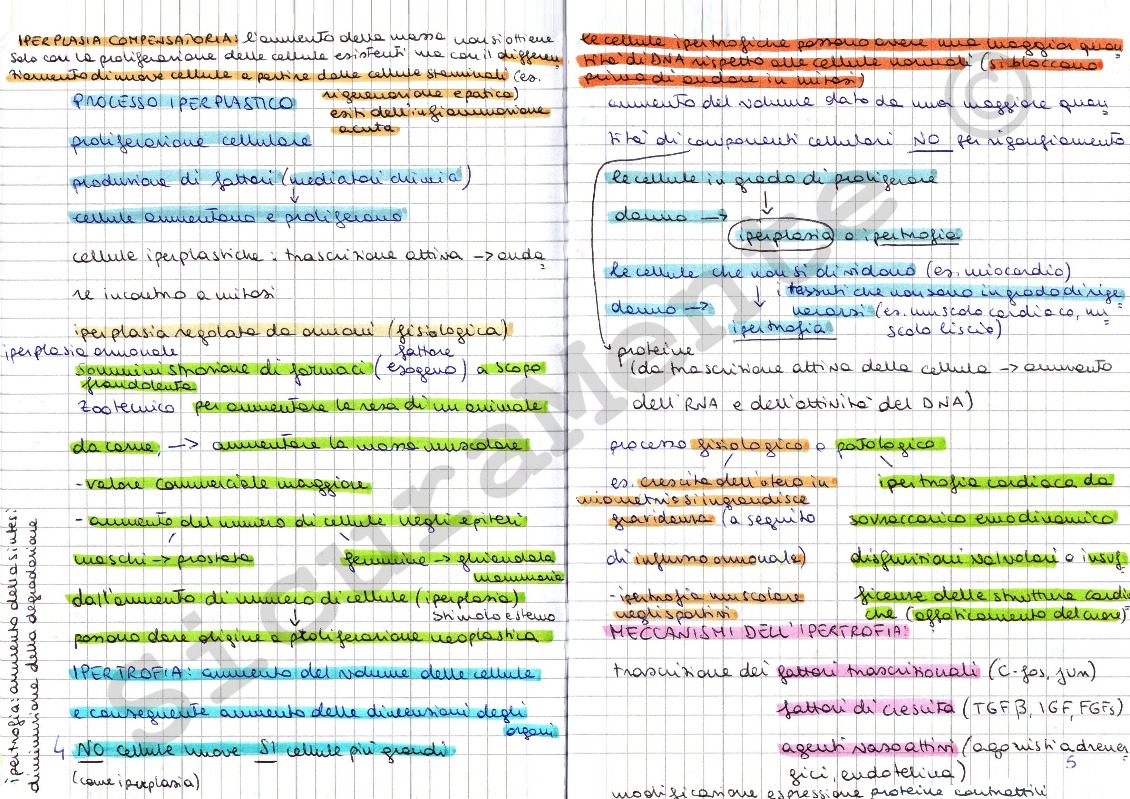 IPERPLASIA COMPENSATORIA: l'aumento della massa non si ottiene
solo con la proliferazione delle cellule esistenti ma con il differen-
ziamento di nuove cellule a partire dalle cellule staminali (es.
rigenerazione epatica)
esiti dell'infiammazione
acuta
PROCESSO IPERPLASTICO
proliferazione cellulare
produzione di fattori (mediatori chimici)
↓
cellule aumentano e proliferano
cellule iperplastiche: trascrizione attiva → anda-
re incontro a mitosi
iperplasia regolata da ormoni (fisiologica)
iperplasia ormonale
fattore
somministrazione di farmaci (esogeno) a scopo
fraudolento
zootecnico per aumentare la resa di un animale
da carne, → aumentare la massa muscolare
- valore commerciale maggiore
- aumento del numero di cellule negli epiteri
maschi → prostata femmine → ghiandola
mammaria
dall'aumento di numero di cellule (iperplasia)
↓ stimolo esterno
possono dare origine a proliferazione neoplastica
IPERTROFIA: aumento del volume delle cellule
e conseguente aumento delle dimensioni degli
organi
4 NO cellule nuove SI cellule più grandi
(come iperplasia)
ipertrofia: aumento della sintesi
diminuzione della degradazione
le cellule ipertrofiche possono avere una maggior quan-
tità di DNA rispetto alle cellule normali (si bloccano
prima di andare in mitosi)
aumento del volume dato da una maggiore quan-
tità di componenti cellulari NO per rigonfiamento
le cellule in grado di proliferare
↓
danno → iperplasia o ipertrofia
le cellule che non si dividono (es. miocardio)
↓ i tessuti che non sono in grado di rige-
danno → nerarsi (es. muscolo cardiaco, mu-
ipertrofia scolo liscio)
proteine
(da trascrizione attiva della cellula → aumento
dell'RNA e dell'attività del DNA)
processo fisiologico o patologico
es. crescita dell'utero in ipertrofia cardiaca da
miometrio si ingrandisce
gravidanza (a seguito sovraccarico emodinamico
di influsso ormonale) disfunzioni valvolari o insuf-
- ipertrofia muscolare ficienze delle strutture cardia
negli sportivi che (affaticamento del cuore)
MECCANISMI DELL'IPERTROFIA:
trascrizione dei fattori trascrizionali (C-fos, jun)
fattori di crescita (TGFβ, IGF, FGFs)
agenti vasoattivi (agonisti adrener-
gici, endotelina) 5
modificazione espressione proteine contrattili
SicuraMente ©